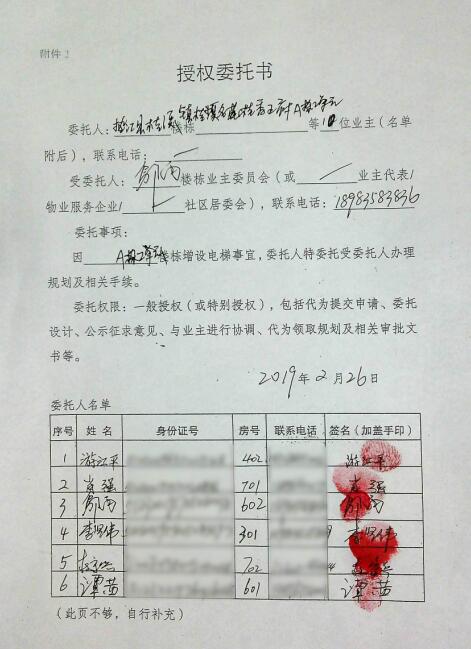 附件2
授权委托书
委托人：垫江县桂溪 A栋2单元 楼栋 等10位业主（名单
附后），联系电话：
受委托人： 楼栋业主委员会（或 业主代表/
物业服务企业/ 社区居委会），联系电话：18983583836
委托事项：
因 A栋2单元 楼栋增设电梯事宜，委托人特委托受委托人办理
规划及相关手续。
委托权限：一般授权（或特别授权），包括代为提交申请、委托
设计、公示征求意见、与业主进行协调、代为领取规划及相关审批文
书等。
2019年2月26日
委托人名单
序号 姓名 身份证号 房号 联系电话 签名（加盖手印）
1 游江平 402 游江平
2 肖强 701 肖强
3 602
4 李坚伟 301 李坚伟
5 702
6 谭茜 601 谭茜
（此页不够，自行补充）